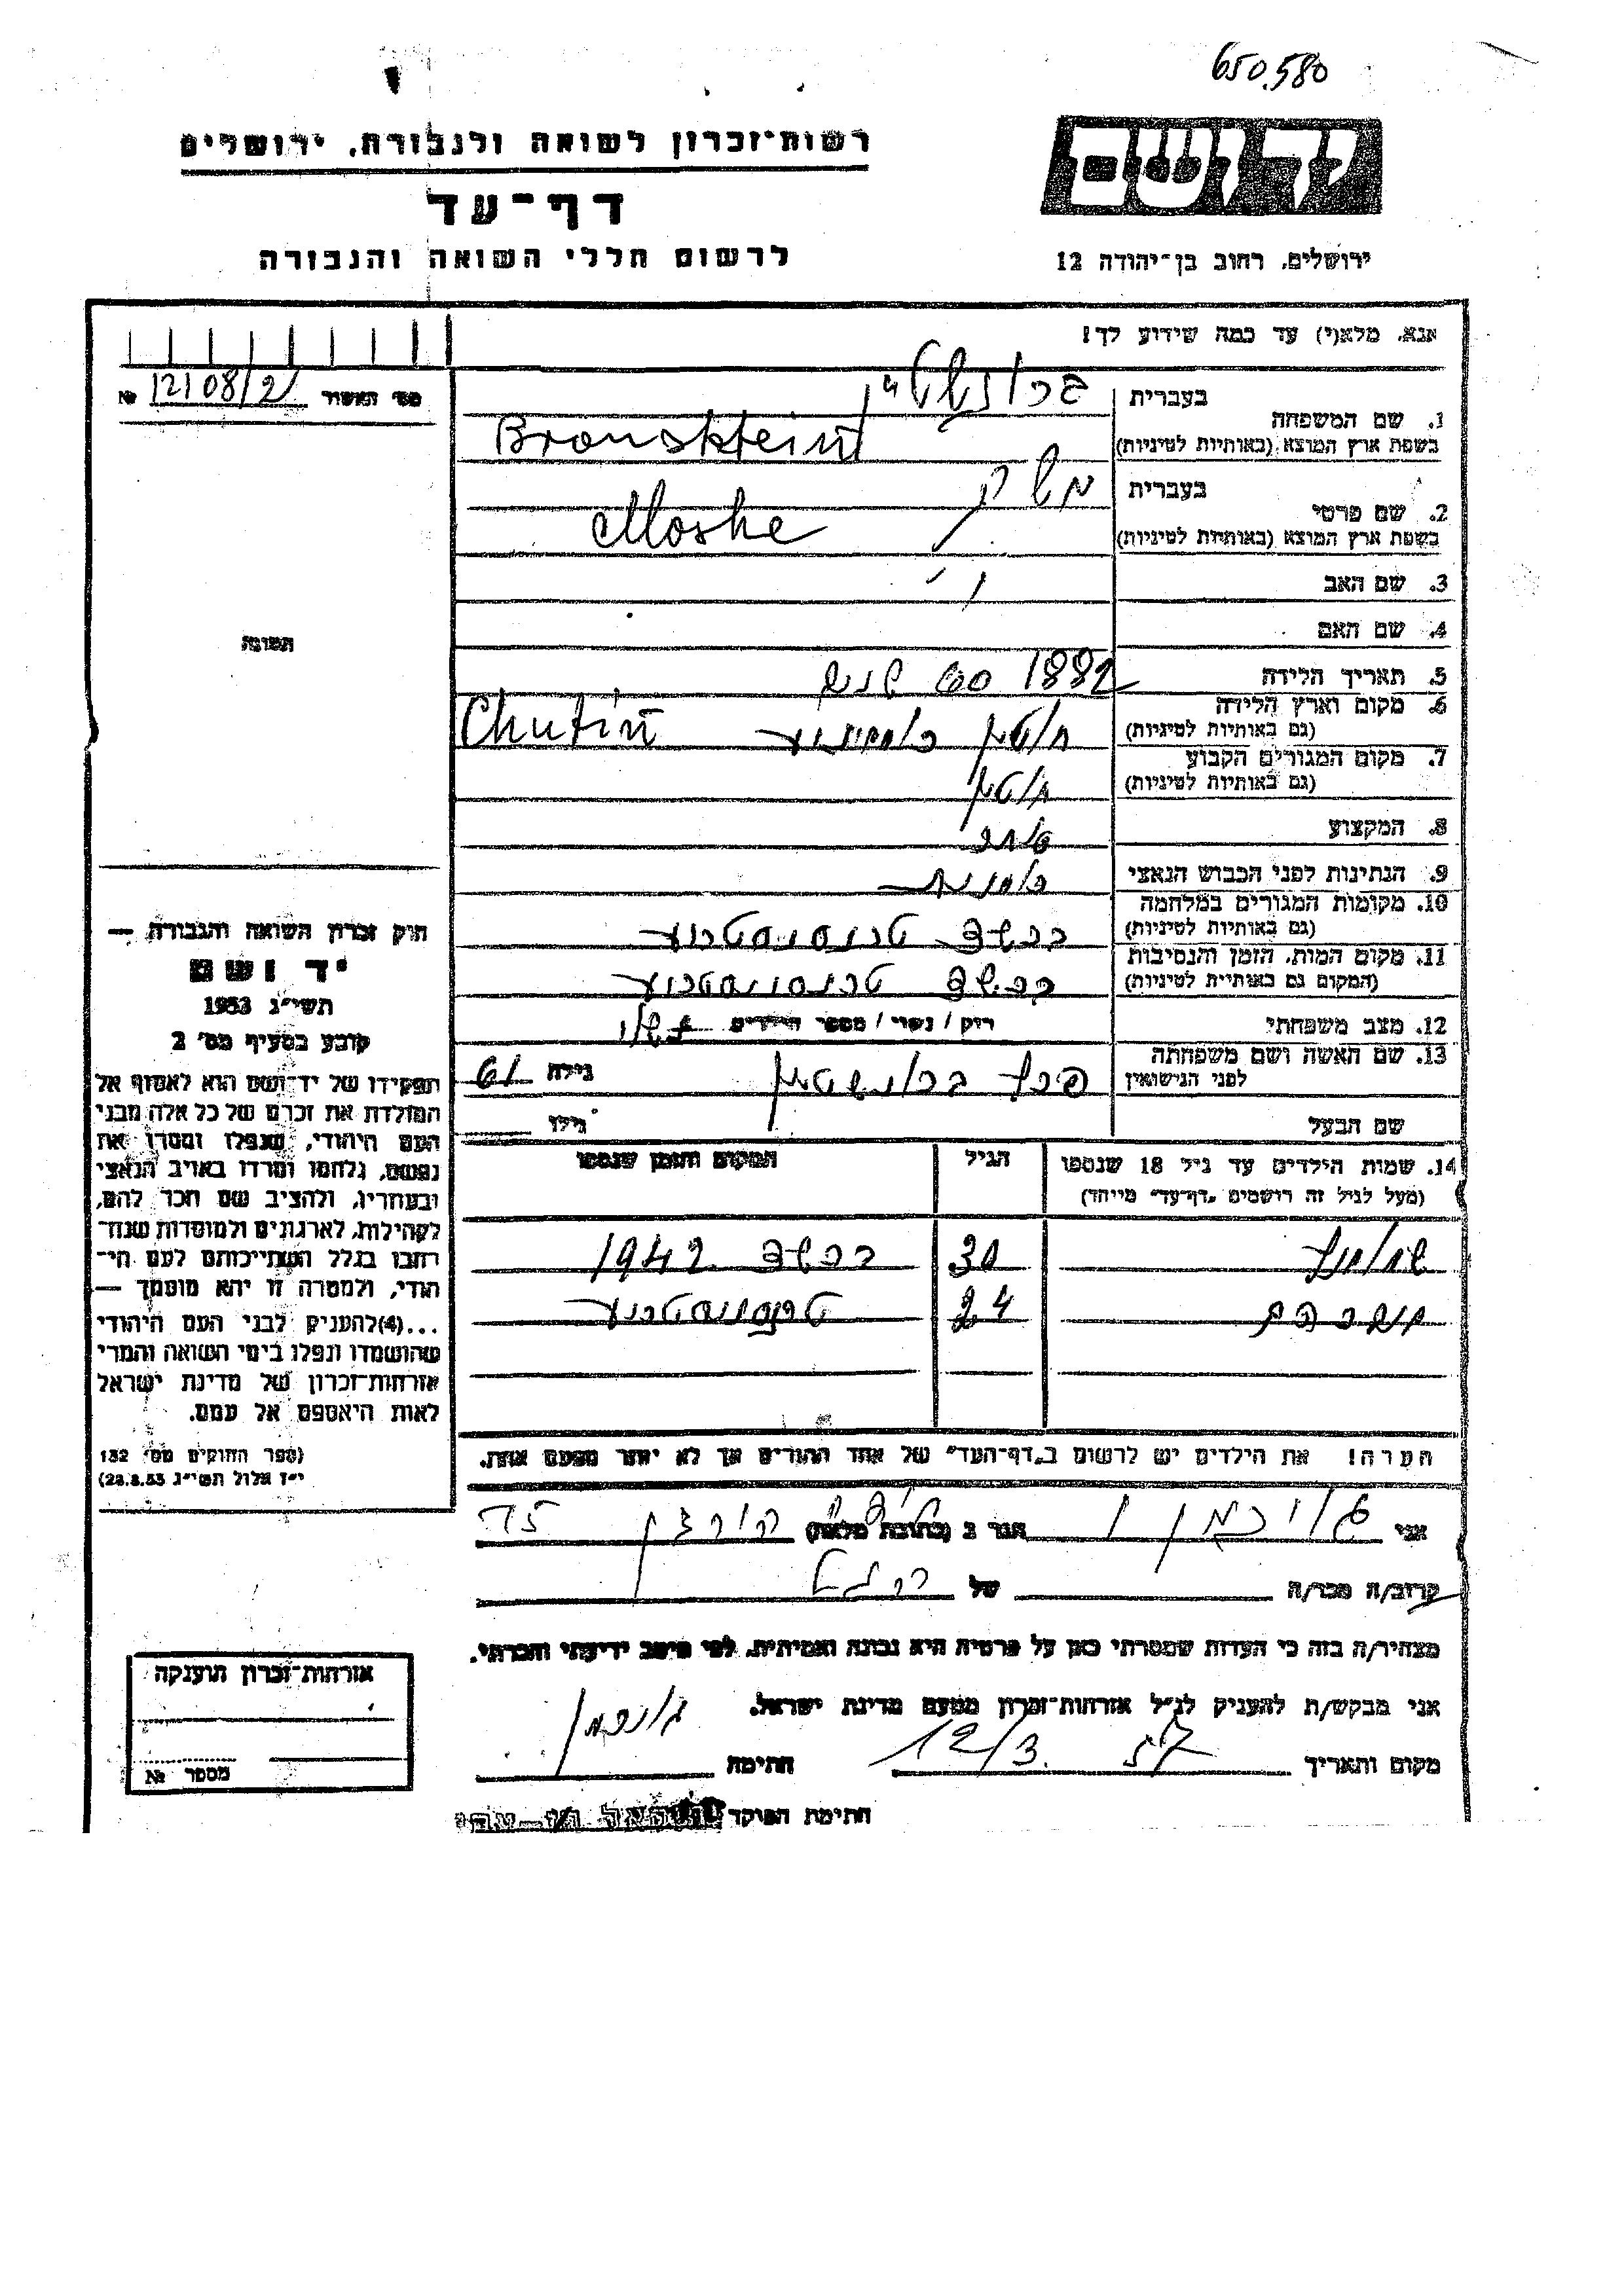 650.580
רשות־זכרון לשואה ולגבורה, ירושלים
דף־עד
לרשום חללי השואה והגבורה
ידושם
ירושלים, רחוב בן־יהודה 12
אנא, מלא(י) עד כמה שידוע לך!
מס׳ האשור № 12108/2
1. שם המשפחה
בעברית ברונשטיין
בשפת ארץ המוצא (באותיות לטיניות) Bronshtein
2. שם פרטי
בעברית משה
בשפת ארץ המוצא (באותיות לטיניות) Moshe
3. שם האב
4. שם האם
5. תאריך הלידה 1882 60 שנים
6. מקום וארץ הלידה
(גם באותיות לטיניות) חוטין רומניע Chutin
7. מקום המגורים הקבוע
(גם באותיות לטיניות) חוטין
8. המקצוע סוחר
9. הנתינות לפני הכבוש הנאצי רומנית
10. מקומות המגורים במלחמה
(גם באותיות לטיניות) ברשד טרנסניסטריע
11. מקום המות, הזמן והנסיבות
(המקום גם באותיות לטיניות) ברשד טרנסניסטריע
12. מצב משפחתי רוק / נשוי / מספר הילדים נשוי
13. שם האשה ושם משפחתה
לפני הנישואין ברונשטיין גילה 61
שם הבעל גילו
14. שמות הילדים עד גיל 18 שנספו
(מעל לגיל זה רושמים "דף־עד" מיוחד)
הגיל
המקום והזמן שנספו
30 ברשד 1942
24 טרנסניסטריע
הערה! את הילדים יש לרשום ב"דף־העד" של אחד ההורים אך לא יותר מפעם אחת.
התמונה
חוק זכרון השואה והגבורה —
יד ושם
תשי״ג 1953
קובע בסעיף מס׳ 2
תפקידו של יד־ושם הוא לאסוף אל
המולדת את זכרם של כל אלה מבני
העם היהודי, שנפלו ומסרו את
נפשם, נלחמו ומרדו באויב הנאצי
ובעוזריו, ולהציב שם וזכר להם,
לקהילות, לארגונים ולמוסדות שנח־
רבו בגלל השתייכותם לעם הי־
הודי, ולמטרה זו יהא מוסמך —
...(4)להעניק לבני העם היהודי
שהושמדו ונפלו בימי השואה והמרי
אזרחות־זכרון של מדינת ישראל
לאות היאספם אל עמם.
(ספר החוקים מס׳ 132
י״ז אלול תשי״ג 28.8.53)
אני גויכמן הגר ב (כתובת מלאה) 75
קרוב/ה מכר/ה של
מצהיר/ה בזה כי העדות שמסרתי כאן על פרטיה היא נכונה ואמיתית, לפי מיטב ידיעתי והכרתי.
אני מבקש/ת להעניק לנ״ל אזרחות־זכרון מטעם מדינת ישראל.
מקום ותאריך 12/3. 57 חתימה גויכמן
חתימת הפוקד
אזרחות־זכרון הוענקה
מספר №